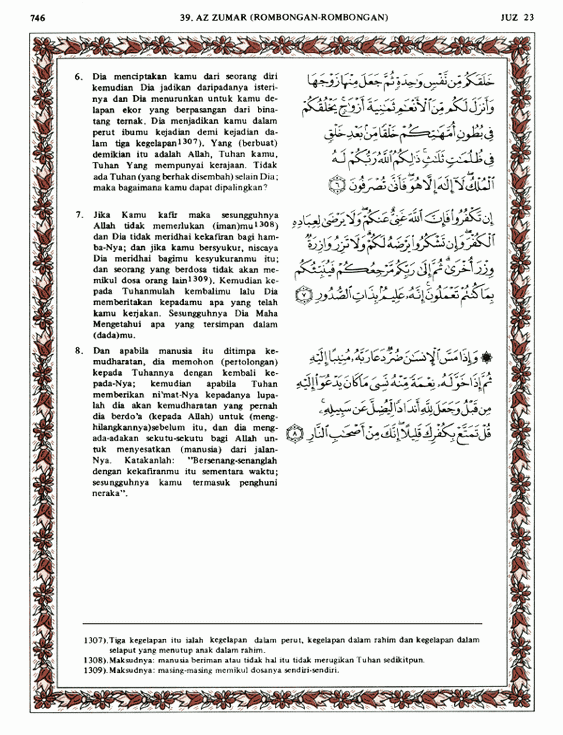 746
39. AZ ZUMAR (ROMBONGAN-ROMBONGAN)
JUZ 23
6. Dia menciptakan kamu dari seorang diri
kemudian Dia jadikan daripadanya isteri-
nya dan Dia menurunkan untuk kamu de-
lapan ekor yang berpasangan dari bina-
tang ternak. Dia menjadikan kamu dalam
perut ibumu kejadian demi kejadian da-
lam tiga kegelapan1307). Yang (berbuat)
demikian itu adalah Allah, Tuhan kamu,
Tuhan Yang mempunyai kerajaan. Tidak
ada Tuhan (yang berhak disembah) selain Dia;
maka bagaimana kamu dapat dipalingkan?
خَلَقَكُم مِّن نَّفْسٍ وَٰحِدَةٍ ثُمَّ جَعَلَ مِنْهَا زَوْجَهَا
وَأَنزَلَ لَكُم مِّنَ ٱلْأَنْعَٰمِ ثَمَٰنِيَةَ أَزْوَٰجٍ يَخْلُقُكُمْ
فِى بُطُونِ أُمَّهَٰتِكُمْ خَلْقًا مِّنۢ بَعْدِ خَلْقٍ
فِى ظُلُمَٰتٍ ثَلَٰثٍ ذَٰلِكُمُ ٱللَّهُ رَبُّكُمْ لَهُ
ٱلْمُلْكُ لَآ إِلَٰهَ إِلَّا هُوَ فَأَنَّىٰ تُصْرَفُونَ ٦
7. Jika Kamu kafir maka sesungguhnya
Allah tidak memerlukan (iman)mu1308)
dan Dia tidak meridhai kekafiran bagi ham-
ba-Nya; dan jika kamu bersyukur, niscaya
Dia meridhai bagimu kesyukuranmu itu;
dan seorang yang berdosa tidak akan me-
mikul dosa orang lain1309). Kemudian ke-
pada Tuhanmulah kembalimu lalu Dia
memberitakan kepadamu apa yang telah
kamu kerjakan. Sesungguhnya Dia Maha
Mengetahui apa yang tersimpan dalam
(dada)mu.
إِن تَكْفُرُوا۟ فَإِنَّ ٱللَّهَ غَنِىٌّ عَنكُمْ وَلَا يَرْضَىٰ لِعِبَادِهِ
ٱلْكُفْرَ وَإِن تَشْكُرُوا۟ يَرْضَهُ لَكُمْ وَلَا تَزِرُ وَازِرَةٌ
وِزْرَ أُخْرَىٰ ثُمَّ إِلَىٰ رَبِّكُم مَّرْجِعُكُمْ فَيُنَبِّئُكُم
بِمَا كُنتُمْ تَعْمَلُونَ إِنَّهُۥ عَلِيمٌۢ بِذَاتِ ٱلصُّدُورِ ٧
8. Dan apabila manusia itu ditimpa ke-
mudharatan, dia memohon (pertolongan)
kepada Tuhannya dengan kembali ke-
pada-Nya; kemudian apabila Tuhan
memberikan ni'mat-Nya kepadanya lupa-
lah dia akan kemudharatan yang pernah
dia berdo'a (kepada Allah) untuk (meng-
hilangkannya)sebelum itu, dan dia meng-
ada-adakan sekutu-sekutu bagi Allah un-
tuk menyesatkan (manusia) dari jalan-
Nya. Katakanlah: "Bersenang-senanglah
dengan kekafiranmu itu sementara waktu;
sesungguhnya kamu termasuk penghuni
neraka".
۞ وَإِذَا مَسَّ ٱلْإِنسَٰنَ ضُرٌّ دَعَا رَبَّهُۥ مُنِيبًا إِلَيْهِ
ثُمَّ إِذَا خَوَّلَهُۥ نِعْمَةً مِّنْهُ نَسِىَ مَا كَانَ يَدْعُوٓا۟ إِلَيْهِ
مِن قَبْلُ وَجَعَلَ لِلَّهِ أَندَادًا لِّيُضِلَّ عَن سَبِيلِهِۦ
قُلْ تَمَتَّعْ بِكُفْرِكَ قَلِيلًا إِنَّكَ مِنْ أَصْحَٰبِ ٱلنَّارِ ٨
1307). Tiga kegelapan itu ialah kegelapan dalam perut, kegelapan dalam rahim dan kegelapan dalam
selaput yang menutup anak dalam rahim.
1308). Maksudnya: manusia beriman atau tidak hal itu tidak merugikan Tuhan sedikitpun.
1309). Maksudnya: masing-masing memikul dosanya sendiri-sendiri.